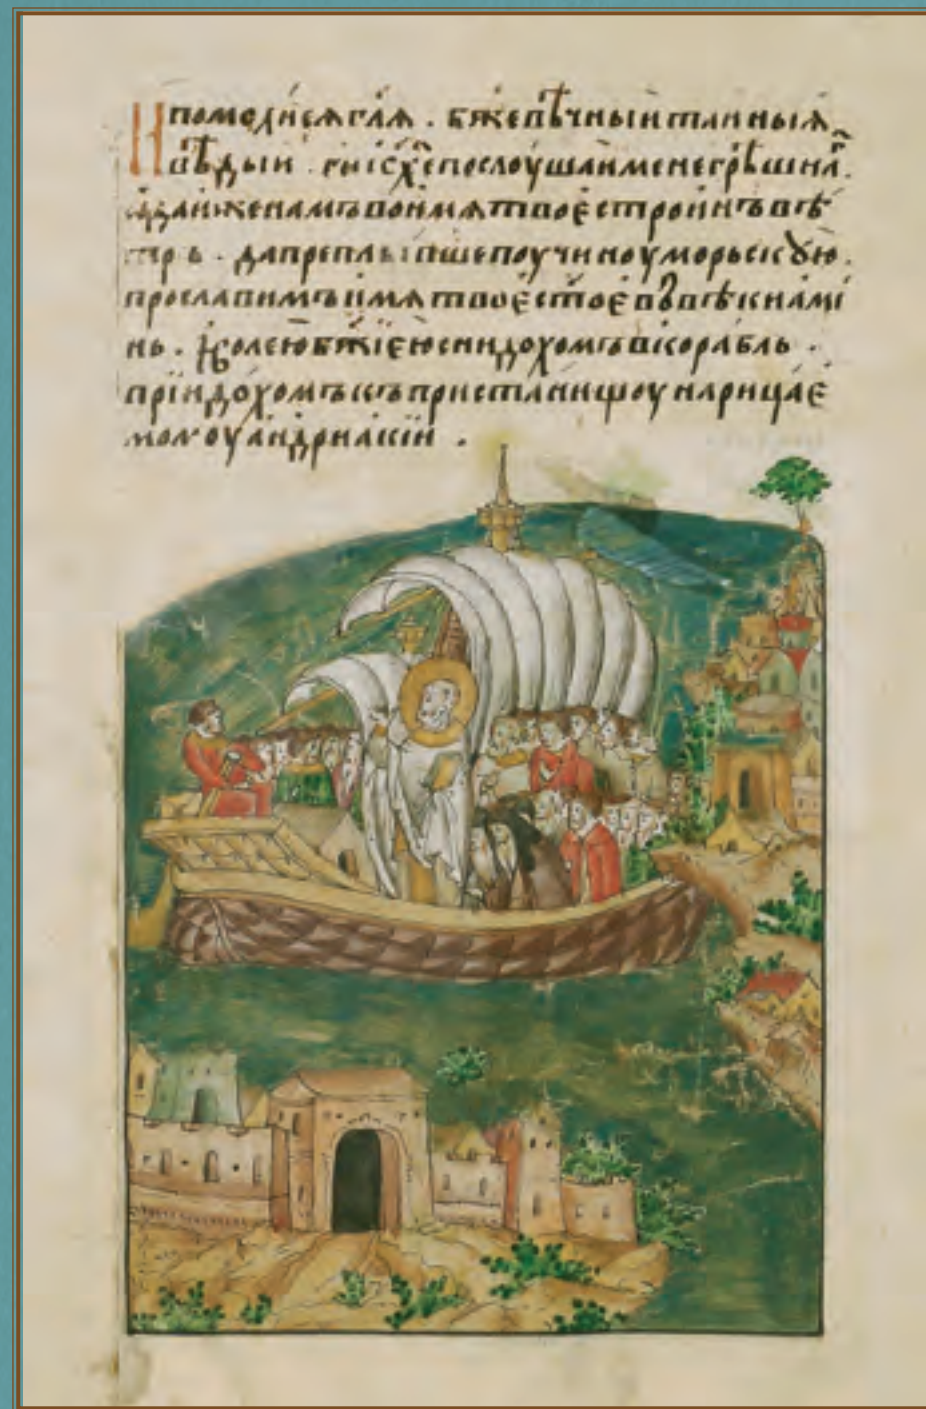 И помолисѧ глѧ . бж҃е вѣчныи и таиныѧ
вѣдыи . ги іс҃ х҃е послоушаи мене грѣшнаг҃.
даиже намъ во имѧ твоѐ строинъ вѣ
тръ . да преплывше поучиноу морьскꙋю .
прославимъ имѧ твоѐ ст҃оѐ въ вѣки ами
нь . волею бж҃іею снидохомъ в корабль .
пріидохомъ къ пристанищоу нарицаѐ
момоу андриакіи .